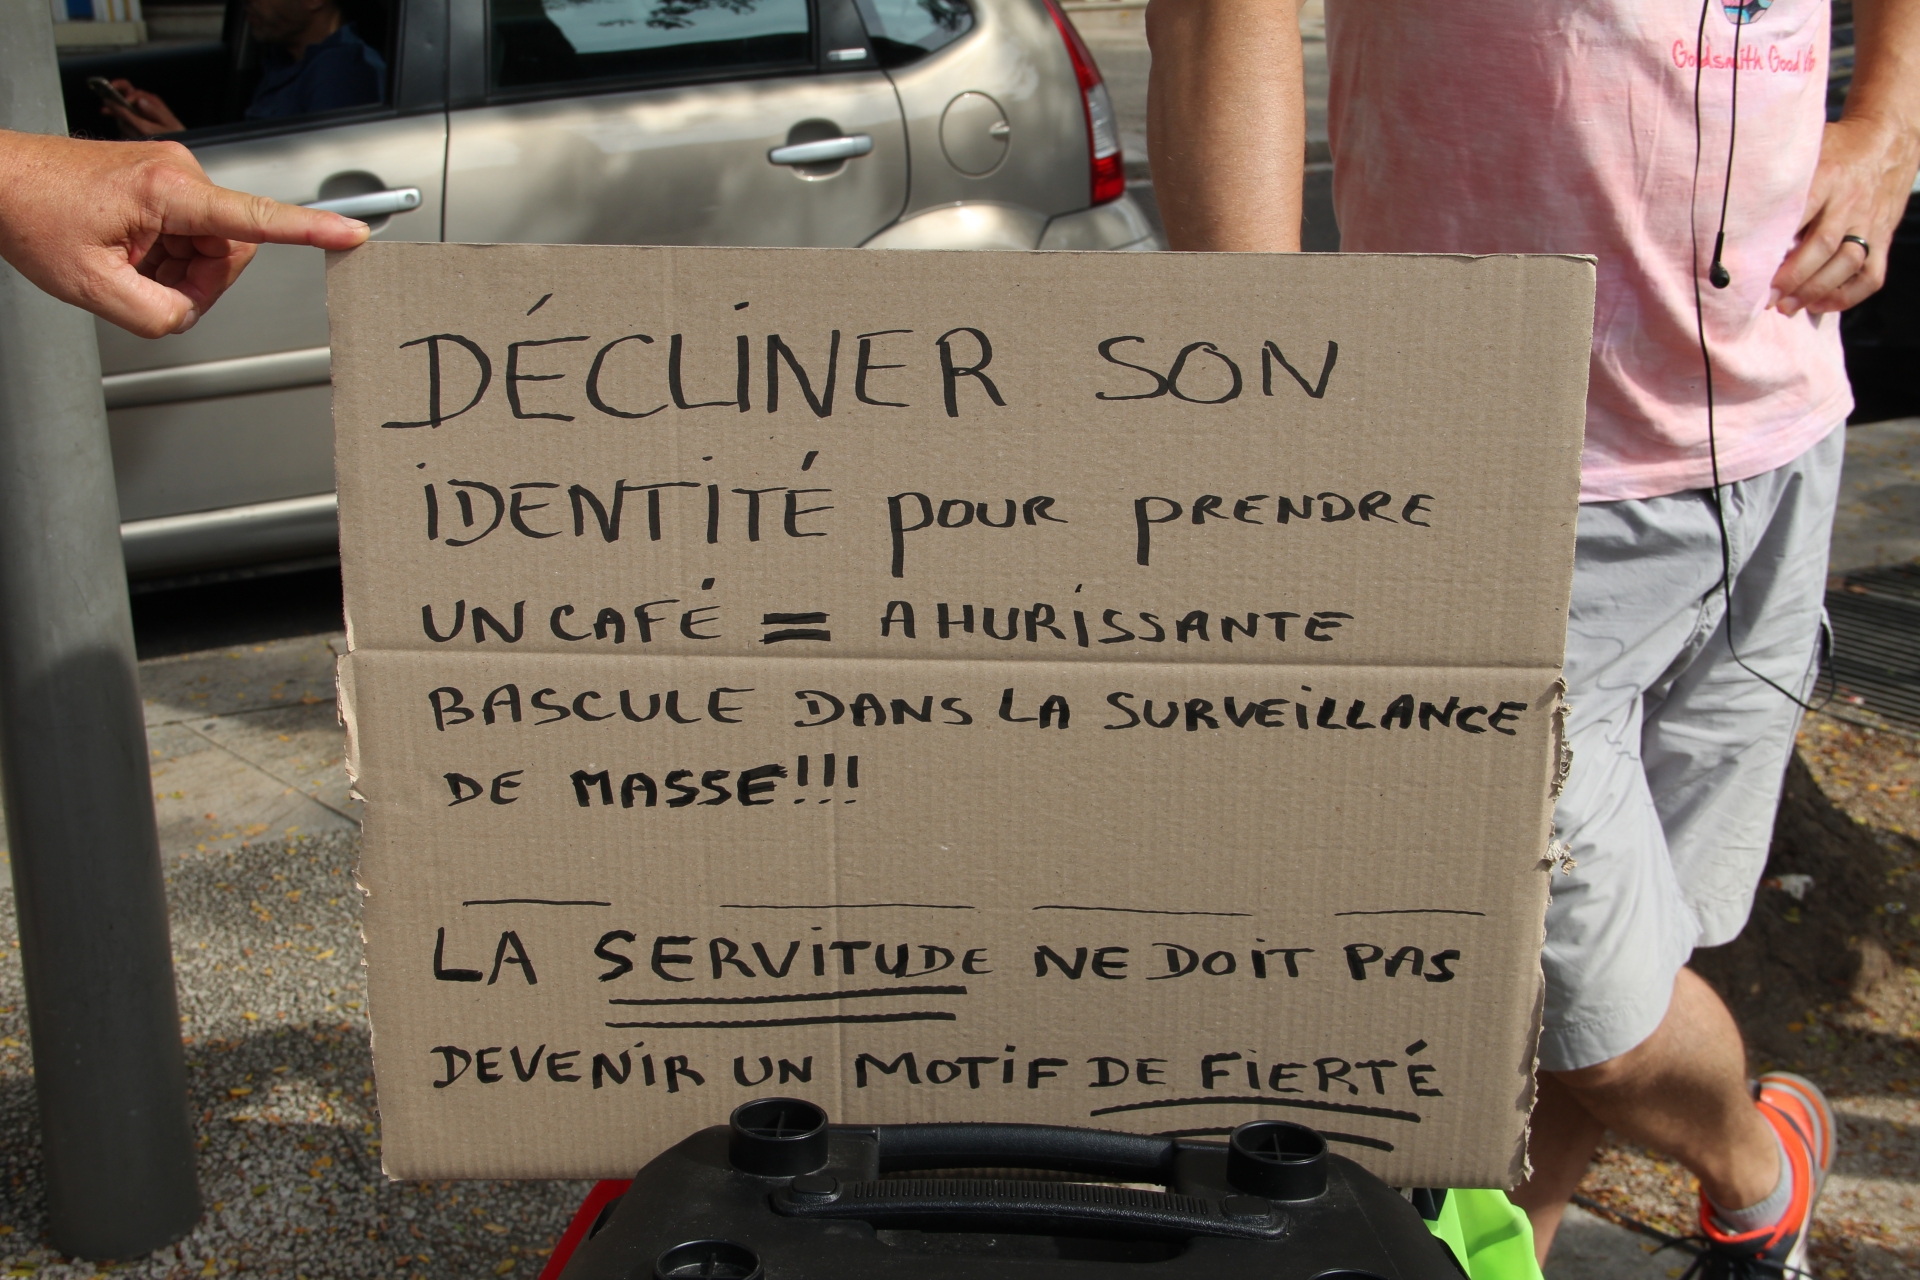 Goldsmith Good
DÉCLINER SON
IDENTITÉ POUR PRENDRE
UN CAFÉ = AHURISSANTE
BASCULE DANS LA SURVEILLANCE
DE MASSE!!!
LA SERVITUDE NE DOIT PAS
DEVENIR UN MOTIF DE FIERTÉ